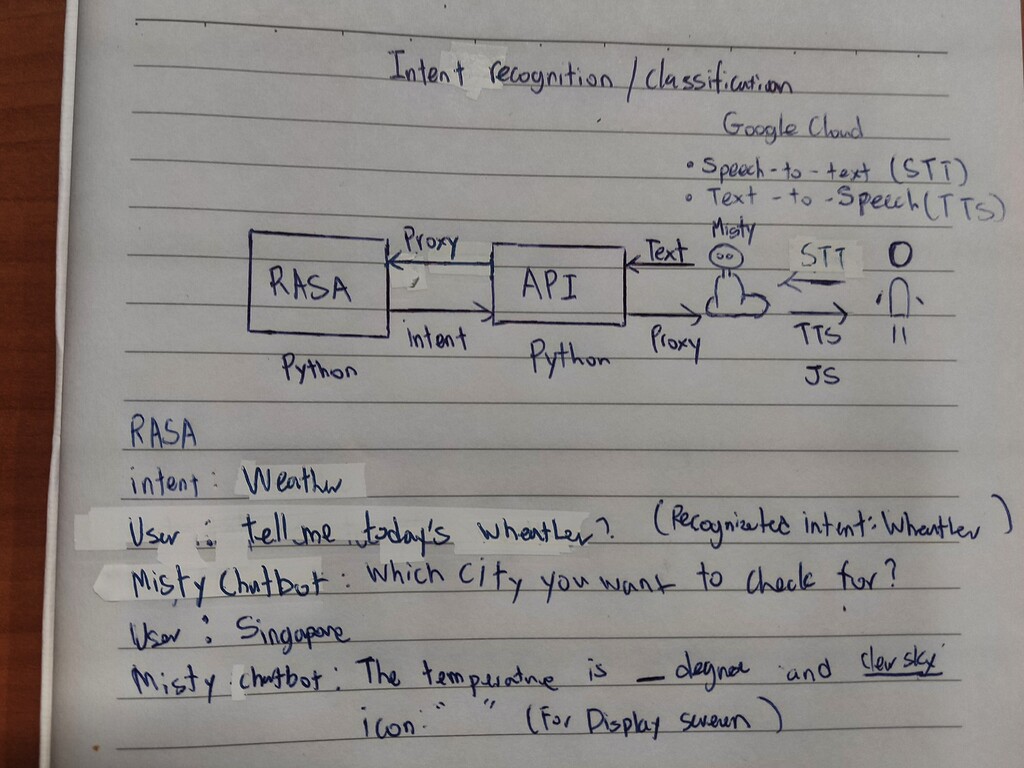 Intent recognition / classification
Google Cloud
• Speech-to-text (STT)
• Text-to-Speech (TTS)
Misty
Proxy
Text
STT
RASA
API
intent
Proxy
TTS
Python
Python
JS
RASA
intent: Weather
User : tell me today's wheather? (Recognized intent: Wheather)
Misty Chatbot: Which City you want to check for?
User : Singapore
Misty chatbot: The temperature is _ degree and cler sky
icon: " " (For Display screen)